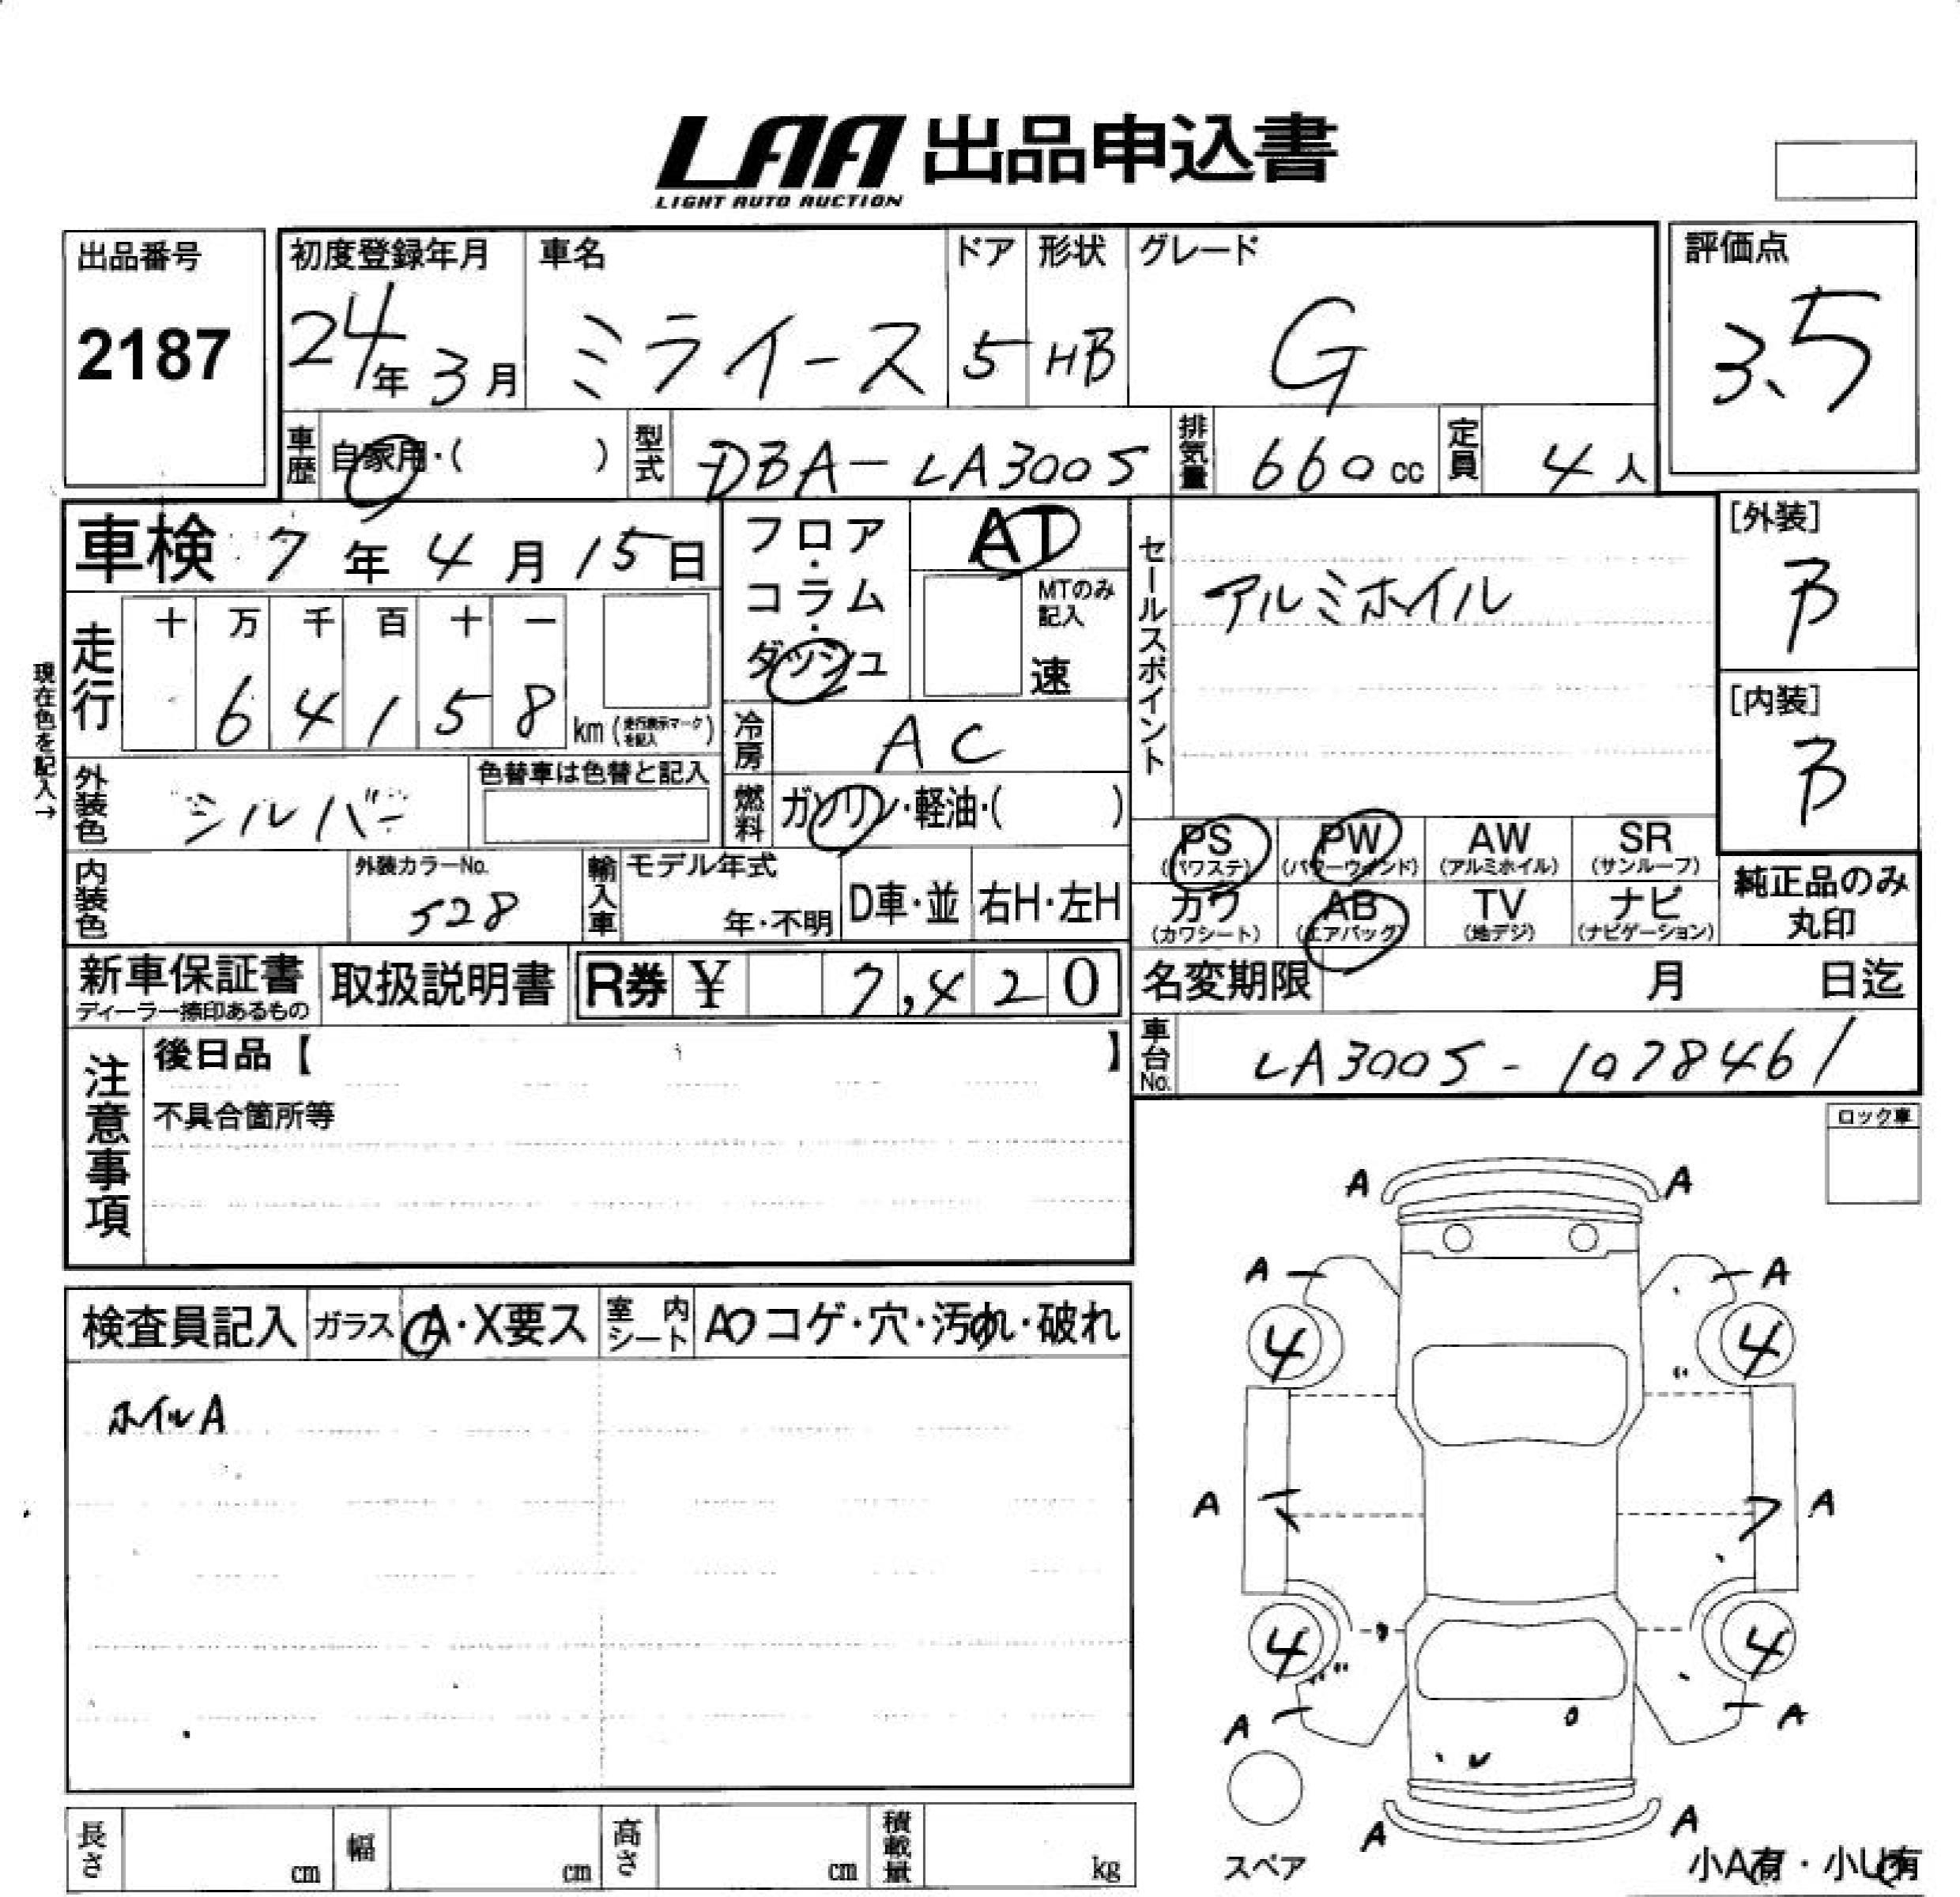 LAA 出品申込書
LIGHT AUTO AUCTION
出品番号
2187
初度登録年月
24年 3月
車名
ミライース
ドア
5
形状
HB
グレード
G
評価点
3.5
車歴 自家用・( )
型式 DBA-LA300S
排気量 660cc
定員 4人
車検 7年 4月 15日
フロア・コラム・ダッシュ
AT
MTのみ記入
速
セールスポイント
アルミホイル
[外装]
B
[内装]
B
現在色を記入→
走行
十 万 千 百 十 一
6 4 1 5 8 km (走行表示マークを記入)
冷房 AC
外装色 シルバー
色替車は色替と記入
燃料 ガソリン・軽油・( )
PS (パワステ)
PW (パワーウィンド)
AW (アルミホイル)
SR (サンルーフ)
カワ (カワシート)
AB (エアバッグ)
TV (地デジ)
ナビ (ナビゲーション)
純正品のみ丸印
内装色
外装カラーNo.
528
輸入車
モデル年式
年・不明
D車・並
右H・左H
新車保証書
ディーラー捺印あるもの
取扱説明書
R券 ¥ 7,420
名変期限 月 日迄
車台No. LA300S-1078461
注意事項
後日品【 】
不具合箇所等
ロック車
検査員記入
ガラス A・X要ス
室内シート A コゲ・穴・汚れ・破れ
ホイルA
A A
A A
4 4
A A
4 4
A A
A A
スペア
小A有・小U有
長さ cm
幅 cm
高さ cm
積載量 kg